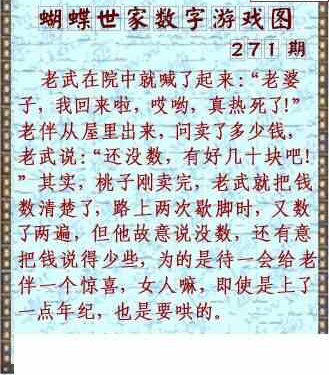 蝴蝶世家数字游戏图
271期
老武在院中就喊了起来:“老婆
子,我回来啦,哎哟,真热死了!”
老伴从屋里出来,问卖了多少钱,
老武说:“还没数,有好几十块吧!
”其实,桃子刚卖完,老武就把钱
数清楚了,路上两次歇脚时,又数
了两遍,但他故意说没数,还有意
把钱说得少些,为的是待一会给老
伴一个惊喜,女人嘛,即使是上了
一点年纪,也是要哄的。